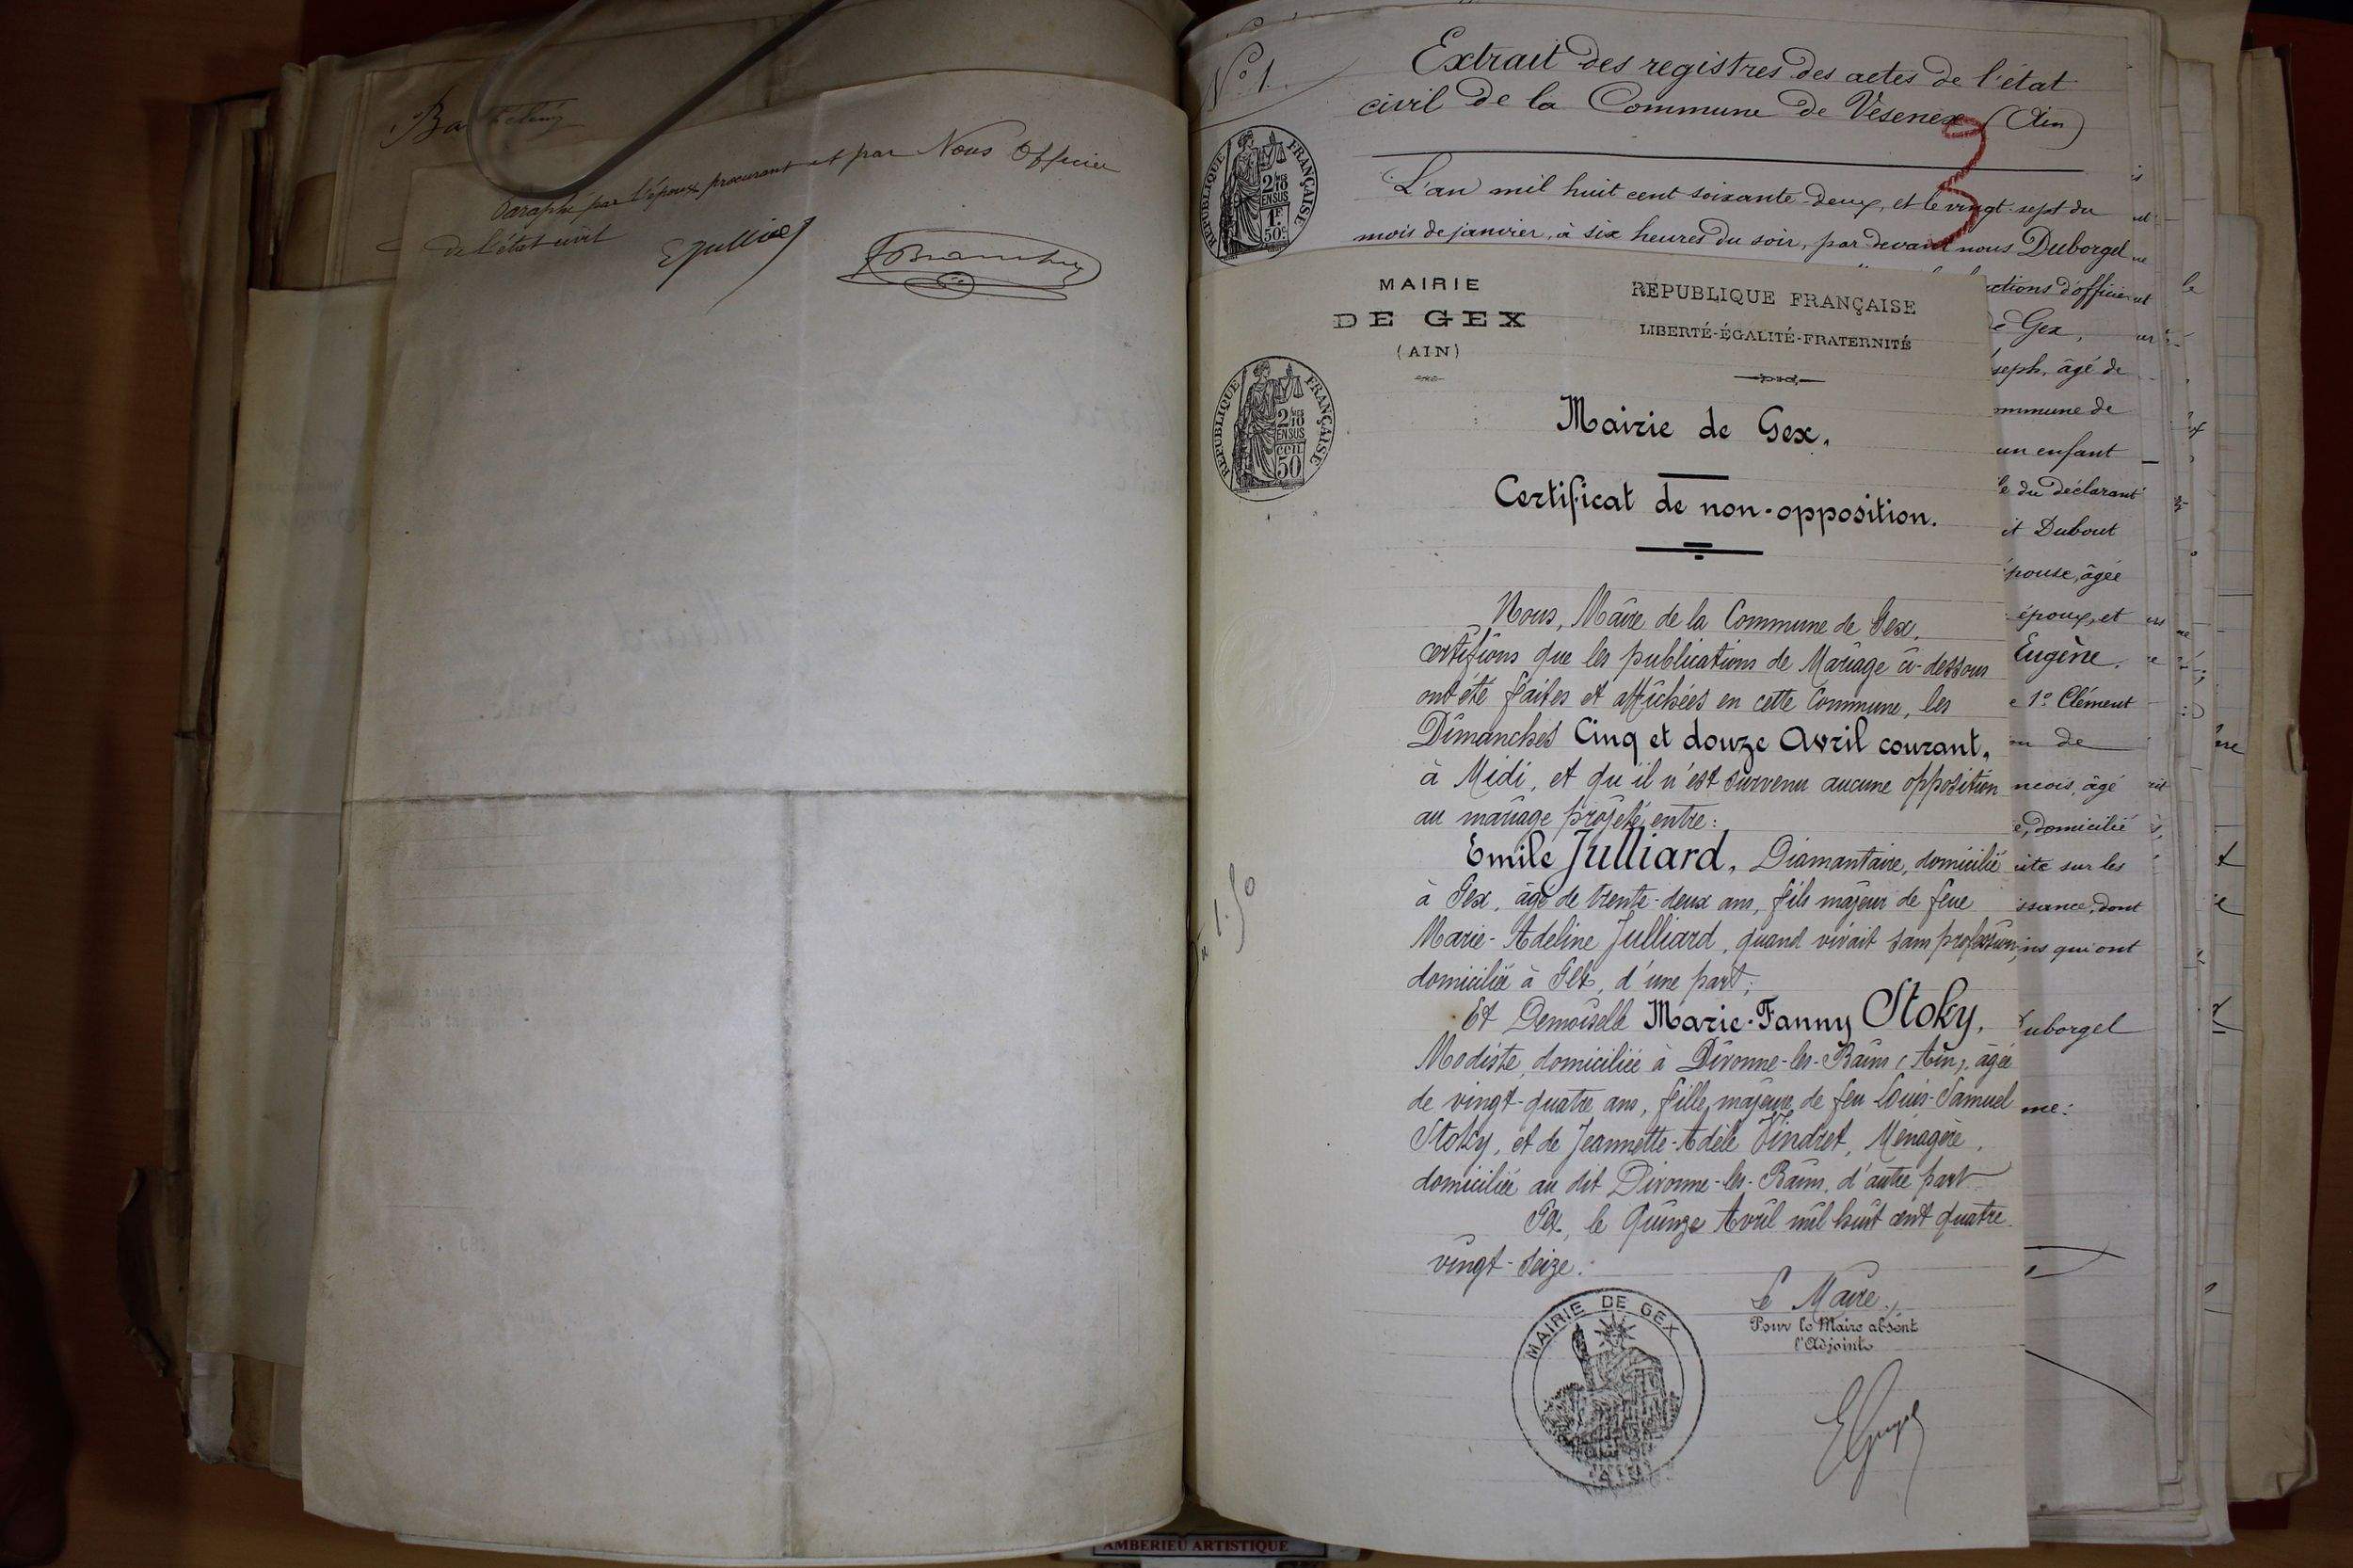 Paraphé par l'époux procurant et par Nous Officier
de l'état civil
EJulliard
N° 1.
Extrait des registres des actes de l'état
civil de la Commune de Vésenex (Ain)
L'an mil huit cent soixante-deux, et le vingt-sept du
mois de janvier, à six heures du soir, par devant nous Duborgel
RÉPUBLIQUE FRANÇAISE
2/10 EN SUS
1F 50c
MAIRIE
DE GEX
(AIN)
RÉPUBLIQUE FRANÇAISE
LIBERTÉ-ÉGALITÉ-FRATERNITÉ
RÉPUBLIQUE FRANÇAISE
2/10 EN SUS
50 cen
Mairie de Gex.
Certificat de non-opposition.
Nous, Maire de la Commune de Gex,
certifions que les publications de Mariage ci-dessous
ont été faites et affichées en cette Commune, les
Dimanches Cinq et douze Avril courant,
à Midi, et qu'il n'est survenu aucune opposition
au mariage projeté entre:
Emile Julliard, Diamantaire, domicilié
à Gex, âgé de trente-deux ans, fils majeur de feue
Marie-Adeline Julliard, quand vivait sans profession,
domiciliée à Gex, d'une part;
Et Demoiselle Marie-Fanny Stoky,
Modiste, domiciliée à Divonne-les-Bains (Ain), âgée
de vingt-quatre ans, fille majeure de feu Louis-Samuel
Stoky, et de Jeannette-Adèle Vindret, Menagère,
domiciliée au dit Divonne-les-Bains, d'autre part
Gex, le Quinze Avril mil huit cent quatre
vingt-seize.
Le Maire,
Pour le Maire absent
l'Adjoint
MAIRIE DE GEX
AIN
1.50
ctions d'officier
de Gex,
seph, âgé de
ommune de
un enfant
le du déclarant
it Dubout
épouse, âgée
époux, et
Eugène.
e 1° Clément
on de
ncois, âgé
e, domicilié
uite sur les
issance, dont
ins qui ont
Duborgel
me:
AMBERIEU ARTISTIQUE